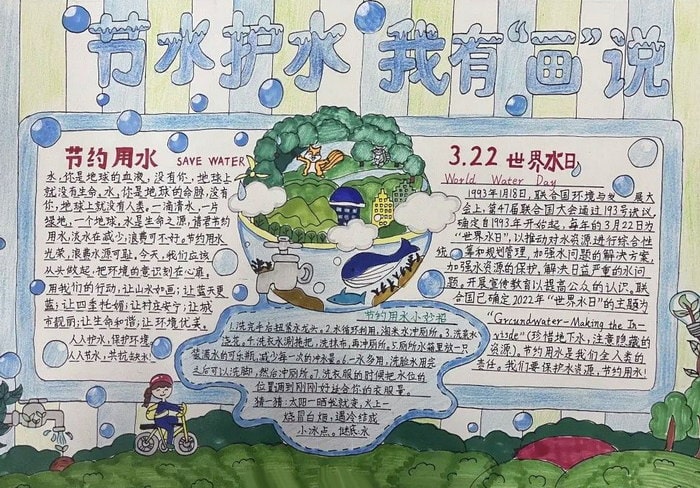 节水护水 我有“画”说
节约用水 SAVE WATER
水,你是地球的血液,没有你,地球上
就没有生命。水,你是地球的命脉,没有
你,地球上就没有人类。一滴清水,一片
绿地,一个地球,水是生命之源,请君节约
用水,淡水在减少,浪费可不好。节约用水
光荣,浪费水源可耻。今天,我们应该
从头做起,把环境的意识刻在心底,
用我们的行动:让山水如画;让蓝天更
蓝;让四季花媚;让村庄安宁;让城
市靓丽;让生命和谐;让环境优美。
人人护水,保护环境,
人人节水,共抗缺水!
3.22 世界水日
World Water Day
1993年1月18日,联合国环境与发 展大
会上,第47届联合国大会通过193号决议,
确定自1993年开始起,每年的3月22日为
“世界水日”,以推动对水资源进行综合性
统筹和规划管理,加强水问题的解决方案,
加强水资源的保护,解决日益严重的水问
题,开展宣传教育以提高公众的认识。联
合国已确定2022年“世界水日”的主题为
“Groundwater-Making the In-
visible”(珍惜地下水,注意隐藏的
资源)。节约用水是我们全人类的
责任。我们要保护水资源,节约用水!
节约用水小妙招
1.洗完手后拧紧水龙头。2.水循环利用,淘米水冲厕所。3.洗菜水
浇花。4.洗衣水涮拖把,洗抹布,再冲厕所。5.厕所水箱里放一只
装满水的可乐瓶,减少每一次的冲水量。6.一水多用,洗脸水用完
之后可以洗脚,然后冲厕所。7.洗衣服的时候把水位的
位置调到刚刚好适合你的衣服量。
猜一猜:太阳一晒我就变,火上一
烧冒白烟,遇冷结成
小冰点。谜底水